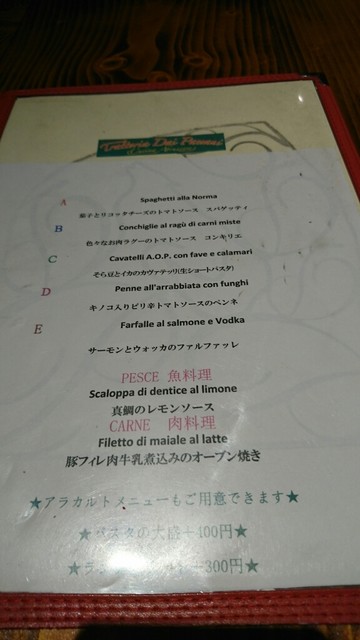 Trattoria Dai Paesani
A
Spaghetti alla Norma
茄子とリコッタチーズのトマトソース スパゲッティ
B
Conchiglie al ragù di carni miste
色々なお肉ラグーのトマトソース コンキリエ
C
Cavatelli A.O.P. con fave e calamari
そら豆とイカのカヴァテッリ(生ショートパスタ)
D
Penne all'arrabbiata con funghi
キノコ入りピリ辛トマトソースのペンネ
E
Farfalle al salmone e Vodka
サーモンとウォッカのファルファッレ
PESCE 魚料理
Scaloppa di dentice al limone
真鯛のレモンソース
CARNE 肉料理
Filetto di maiale al latte
豚フィレ肉牛乳煮込みのオーブン焼き
★アラカルトメニューもご用意できます★
★パスタの大盛+100円★
+300円★